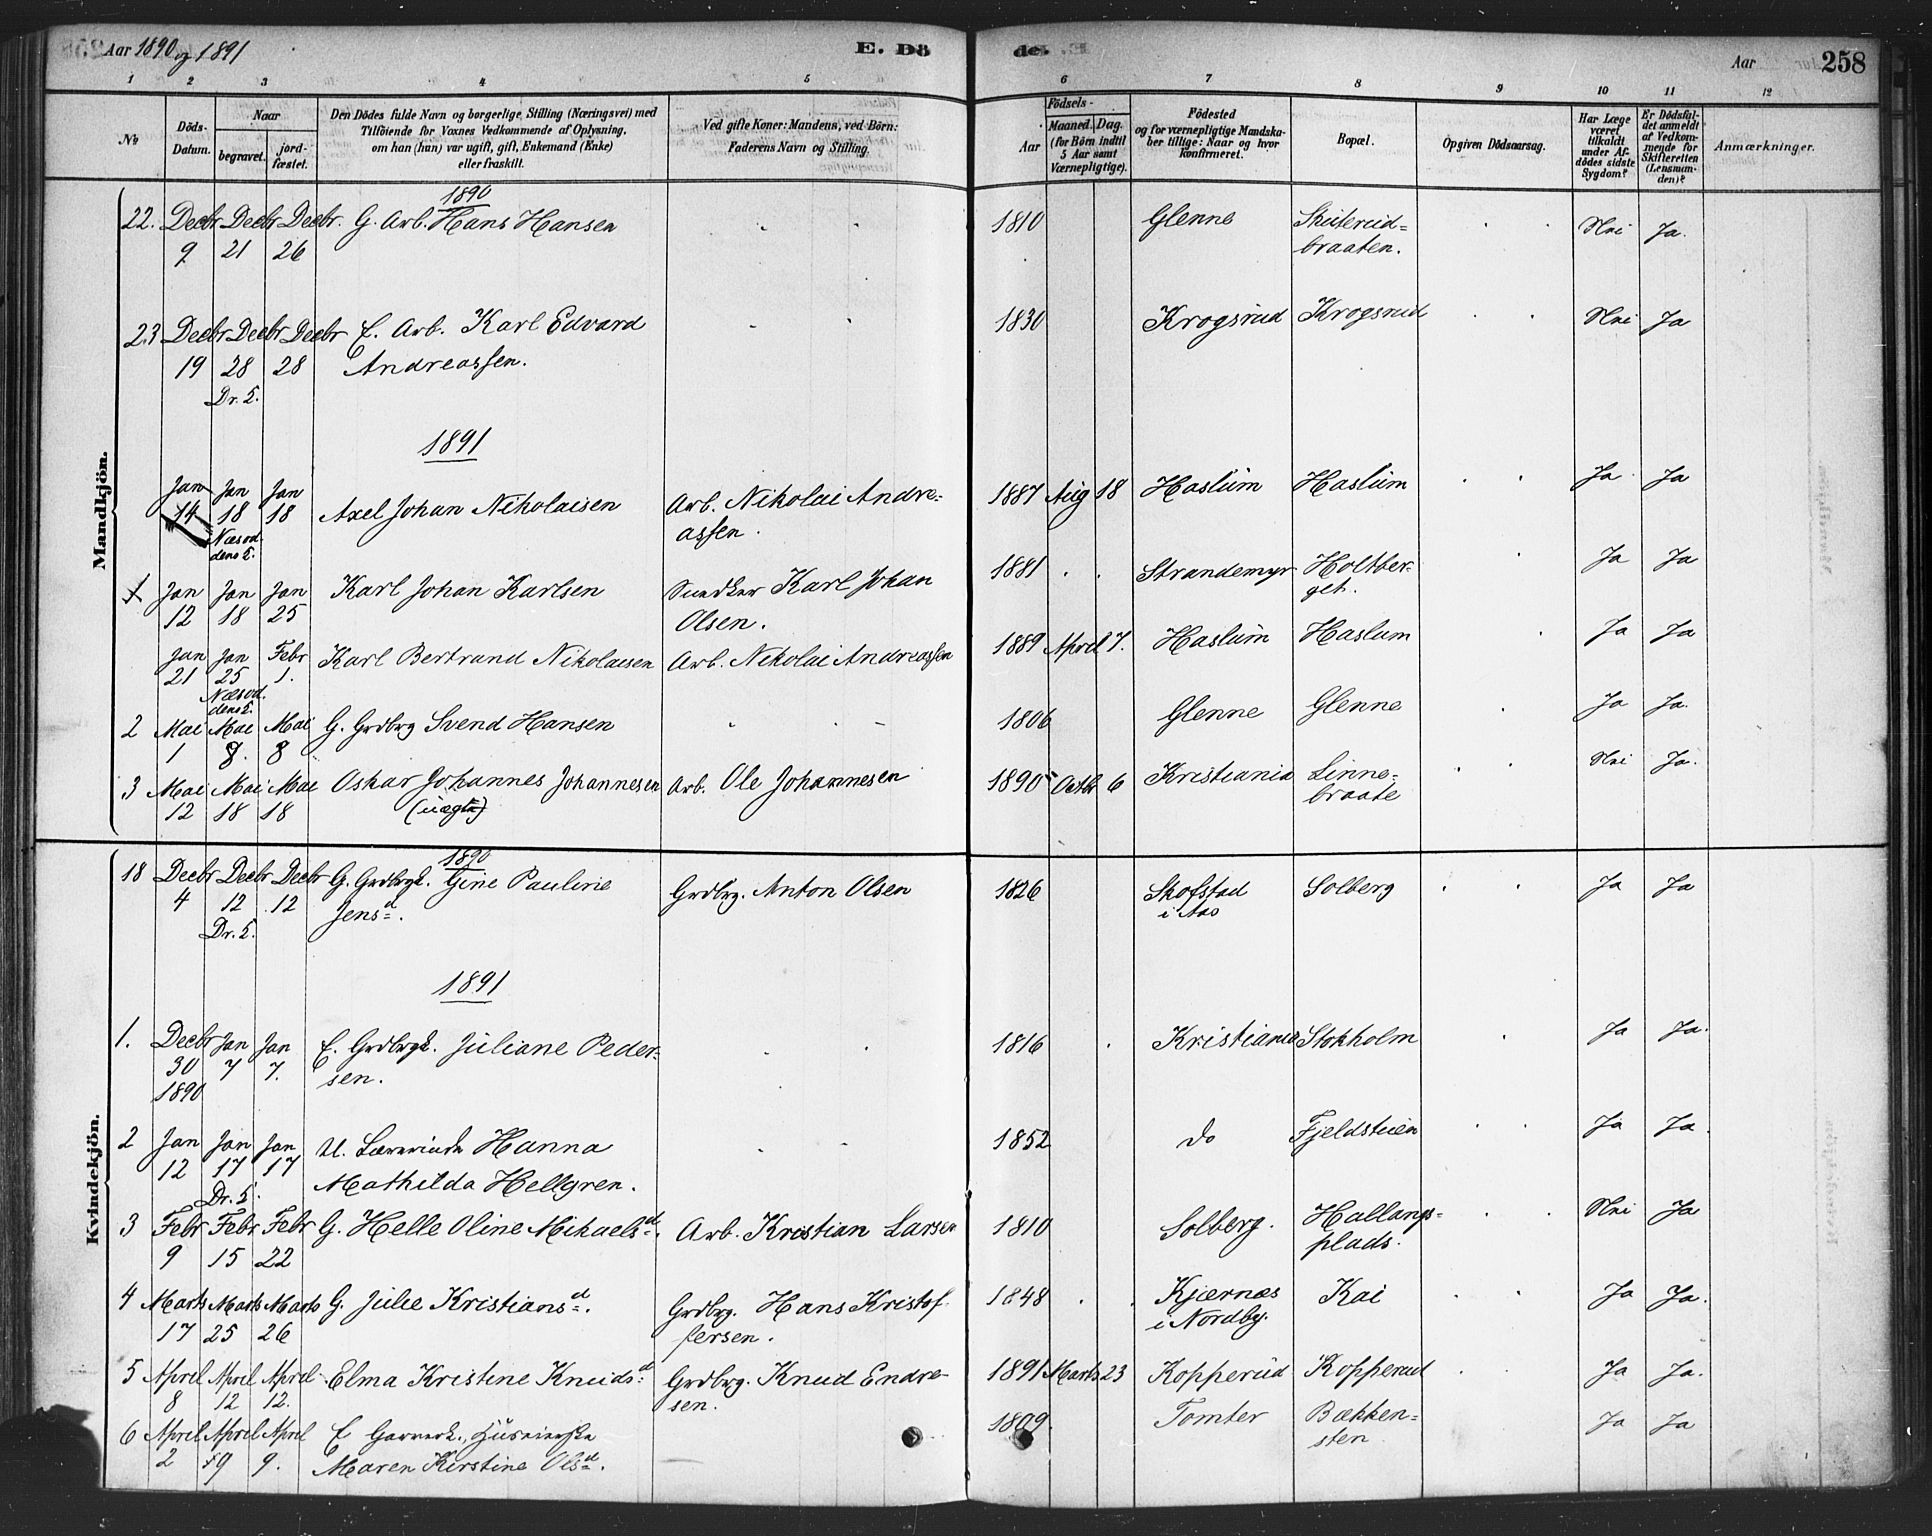 Aar 1890 og 1891 E. Dö de. Aar 258
1 2 3 4 5 6 7 8 9 10 11 12
No. Döds-Datum. Naar begravet. jordfæstet. Den Dödes fulde Navn og borgerlige Stilling (Næringsvei) med Tilföiende for Voxnes Vedkommende af Oplysning, om han (hun) var ugift, gift, Enkemand (Enke) eller fraskilt. Ved gifte Koner: Mandens, ved Börn: Faderens Navn og Stilling. Födsels- Aar Maaned. Dag. (for Börn indtil 5 Aar samt Værnepligtige). Födested og for værnepligtige Mandskaber tillige: Naar og hvor Konfirmeret. Bopæl. Opgiven Dödsaarsag. Har Læge været tilkaldt under Afdödes sidste Sygdom? Er Dödsfaldet anmeldt af Vedkommende for Skifteretten (Lensmanden)? Anmærkninger.
Mandkjön.
1890
22. Decbr Decbr Decbr. G. Arb. Hans Hansen 1810 Glenne Skuterud= Nei Ja.
9 21 26 braaten.
23 Decbr Decbr Decbr E. Arb. Karl Edvard 1830 Krogsrud Krogsrud Nei Ja
19 28 28 Andreassen.
Dr. S.
1891
Jan Jan Jan Axel Johan Nikolaisen Arb. Nikolai Andre- 1887 Aug 18 Haslum Haslum Ja Ja
14 18 18 assen.
Næsod
dens S.
1 Jan Jan Jan Karl Johan Karlsen Snedker Karl Johan 1881 Strandemyr Holtber- Ja Ja
12 18 25 Olsen. get.
Jan Jan Febr Karl Bertrand Nikolaisen Arb. Nikolai Andreassen 1889 April 7. Haslum Haslum Ja Ja
21 25 1.
Næsod.
dens S.
2 Mai Mai Mai G. Grdbrg Svend Hansen 1806 Glenne Glenne Ja Ja.
1 8. 8
3 Mai Mai Mai Oskar Johannes Johannesen Arb. Ole Johannesen 1890 Octbr 6 Kristiania Linne- Nei Ja.
12 18 18 (uægte) braate
Kvindekjön.
1890
18 Decbr Decbr Decbr G. Grdbrgk. Gine Pauline Grdbrg. Anton Olsen 1826 Skofstad Solberg Ja Ja
4 12 12 Jensd. i Aas
Dr. S.
1891
1. Decbr Jan Jan E. Grdbrgk. Juliane Peder- 1816 Kristiania Stokholm Ja Ja.
30 7 7. sen.
1890
2 Jan Jan Jan U. Lærerinde Hanna 1852 do Fjeldstuen Ja Ja.
12 17 17 Mathilda Hellgren.
Dr. S.
3 Febr Febr Febr G. Helle Oline Mikaelsd. Arb. Kristian Larsen 1810 Solberg. Hallangs= Nei Ja
9 15 22 plads.
4 Marts Marts Marts G. Julie Kristiansd. Grdbrg. Hans Kristof 1848 Kjærnæs Kai Ja Ja.
17 25 26 fersen. i Nordby.
5 April April April Elma Kristine Knudsd Grdbrg. Knud Endre- 1891 Marts 23 Kopperud Kopperud Ja Ja.
8 12 12. sen.
6 April April April E 1809. Tomter Bækken= Ja Ja
2 9 9. Maren Kirstine Olsd. sten